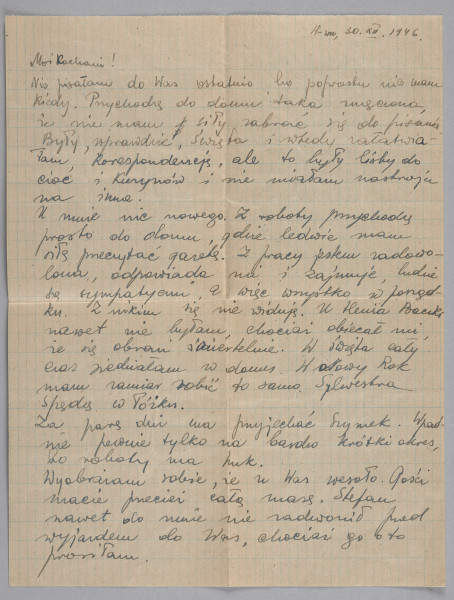 30.XII.1946.
Moi Kochani!
Nie pisałam do Was ostatnio bo poprostu nie mam
kiedy. Przychodzę do domu taka zmęczona,
że nie mam siły zabrać się do pisania.
Były, wprawdzie, Święta i wtedy załatwia-
łam korespondencję, ale to były listy do
cioć i kuzynów i nie miałam nastroju
na inne.
U mnie nic nowego. Z roboty przychodzę
prosto do domu, gdzie ledwie mam
siłę przeczytać gazetę. Z pracy jestem zadowo-
lona, odpowiada mi i zajmuje, ludzie
są sympatyczni, a więc wszystko w porząd-
ku. Z nikim się nie widuję. U Henia
nawet nie byłam, chociaż obiecał mi,
że się obrazi śmiertelnie. W Święta cały
czas siedziałam w domu. W Nowy Rok
mam zamiar robić to samo. Sylwestra
spędzę w łóżku.
Za parę dni ma przyjechać Szymek. Wpad-
nie pewnie tylko na bardzo krótki okres,
bo roboty ma huk.
Wyobrażam sobie, że u Was wesoło. Gości
macie przecież całą masę. Stefan
nawet do mnie nie zadzwonił przed
wyjazdem do Was, chociaż go o to
prosiłam.